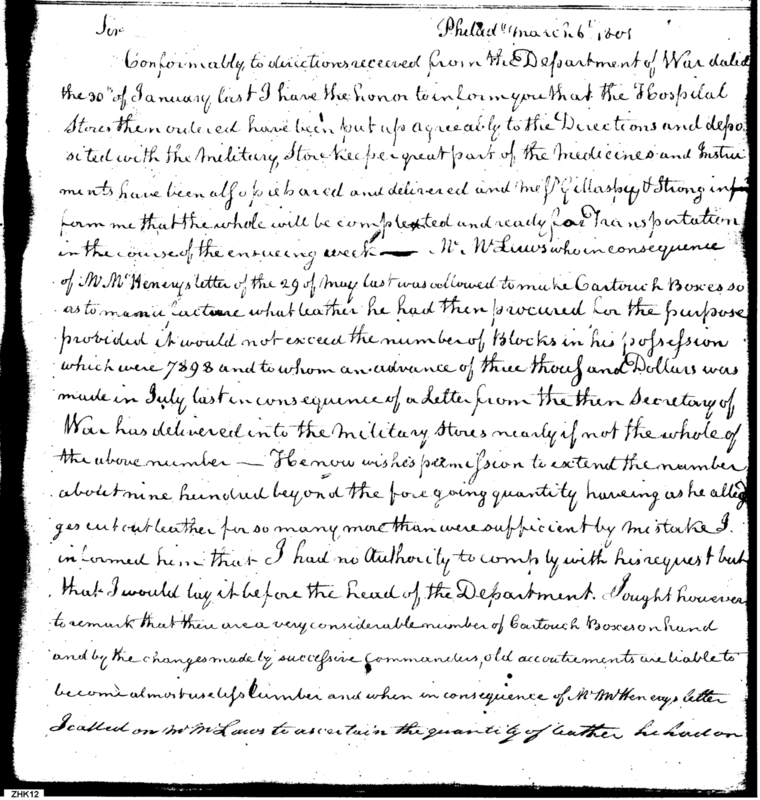 Sir Philad.ª March 6.t 1801
Conformably to directions received from the Department of War dated
the 30th of January last I have the honor to inform you that the Hospital
Stores then ordered have been put up agreeably to the Directions and depo
sited with the Military, Storekeeper great part of the Medicines and Instru
ments have been also prepared and delivered and Messrs Gillaspy & Strong in
form me that the whole will be completed and ready for Transportation
in the course of the ensueing week — Mr McLaws who in consequence
of Mr McHenerys letter of the 29 of May last was allowed to make Cartouch Boxes so
as to manufacture what leather he had then procured for the purpose
provided it would not exceed the number of Blocks in his possession
which were 7898 and to whom an advance of three thousand Dollars was
made in July last in consequence of a Letter from the then Secretary of
War has delivered into the Military Stores nearly if not the whole of
the above number — He now wishes permission to extend the number
about nine hundred beyond the fore going quantity haveing as he alled
ges cut out leather for so many more than were sufficient by mistake I
informed him that I had no Authority to comply with his request but
that I would lay it before the head of the Department. I ought however
to remark that there are a very considerable number of Cartouch Boxes on hand
and by the changes made by successive Commanders, old accoutrements are liable to
become almost useless lumber and when in consequence of Mr McHenerys letter
I called on Mr McLaws to ascertain the quantity of leather he had on
ZHK12